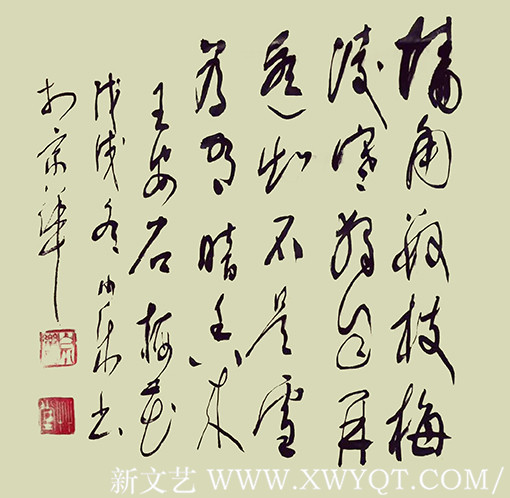 墙角数枝梅
凌寒独自开
遥知不是雪
为有暗香来
王安石 梅花
戊戌冬 书
于京华
新文艺 WWW.XWYQT.COM/